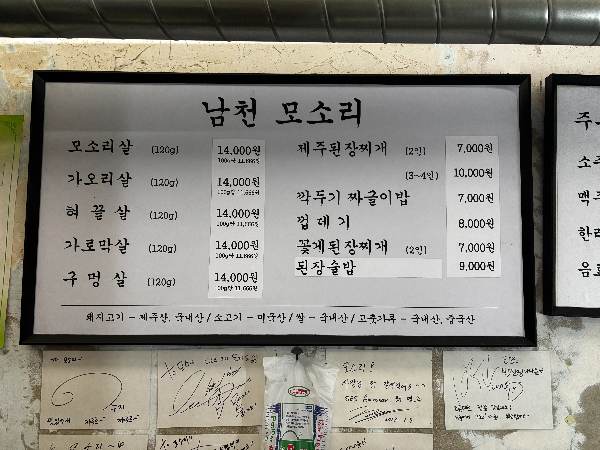 남천 모소리
모소리살 (120g) 14,000원
100g당 11,666원
가오리살 (120g) 14,000원
100g당 11,666원
혀 끌 살 (120g) 14,000원
100g당 11,666원
가로막살 (120g) 14,000원
100g당 11,666원
구 멍 살 (120g) 14,000원
100g당 11,666원
제주된장찌개 (2인) 7,000원
(3~4인) 10,000원
깍두기 짜글이밥 7,000원
껍 데 기 8,000원
꽃게된장찌개 (2인) 7,000원
된장술밥 9,000원
돼지고기 - 제주산, 국내산 / 소고기 - 미국산 / 쌀 - 국내산 / 고춧가루 - 국내산, 중국산
주
소주
맥주
한라
음료